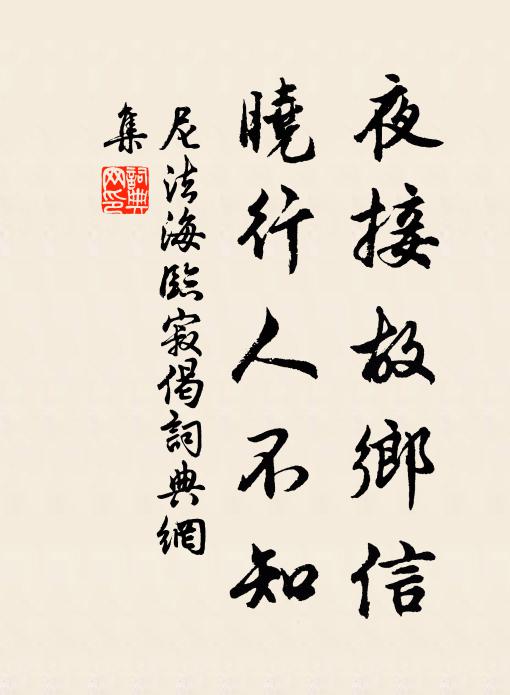 夜接故鄉信
曉行人不知
尼法海臨寂偈詞典網
集
詞典網印